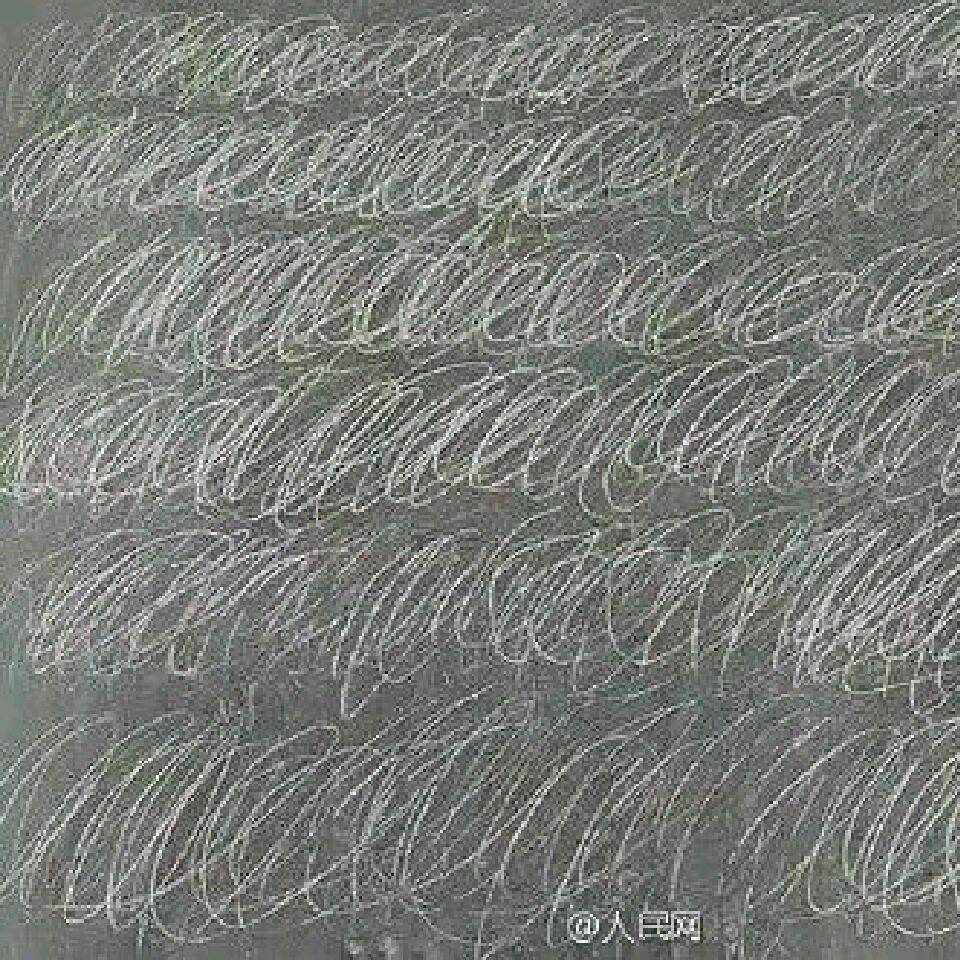 @人民网